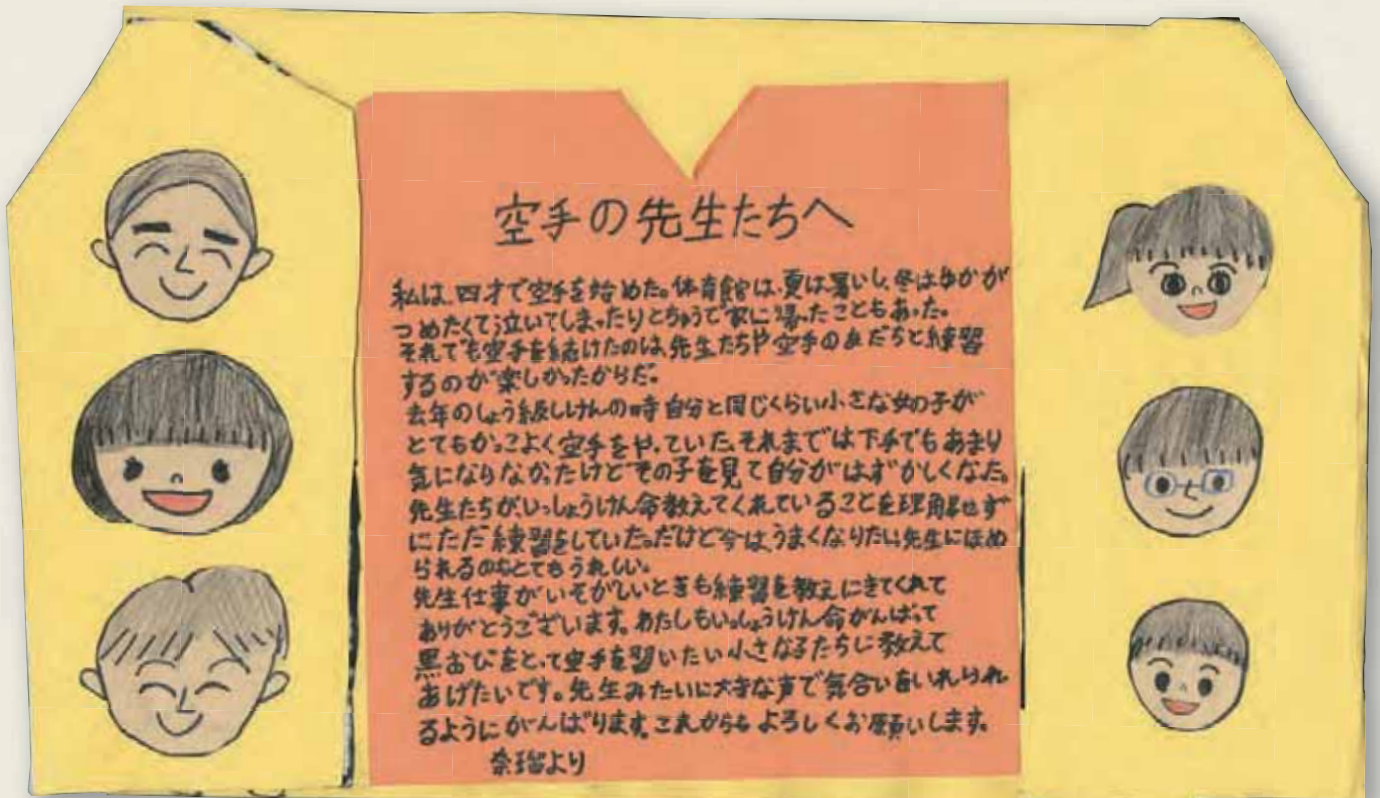 空手の先生たちへ
私は、四才で空手を始めた。体育館は、夏は暑いし、冬はゆかが
つめたくて泣いてしまったりとちゅうで家に帰ったこともあった。
それでも空手を続けたのは、先生たちや空手の友だちと練習
するのが楽しかったからだ。
去年のしょう級しけんの時自分と同じくらい小さな女の子が
とてもかっこよく空手をやっていた。それまでは下手でもあまり
気にならなかったけどその子を見て自分がはずかしくなった。
先生たちがいっしょうけん命教えてくれていることを理用せず
にただ練習をしていた。だけど今は、うまくなりたいし先生にほめ
られるのもとてもうれしい。
先生仕事がいそがしいときも練習を教えにきてくれて
ありがとうございます。わたしもいっしょうけん命がんばって
黒おびをとって空手を習いたい小さな子たちに教えて
あげたいです。先生みたいに大きな声で気合いをいれられ
るようにがんばります。これからもよろしくお願いします。
奈瑠より